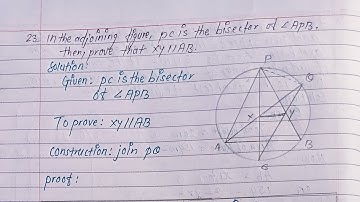 23. In the adjoining figure, pc is the bisector of ∠APB.
then, prove that xy//AB.
Solution:
Given: pc is the bisector
of ∠APB
To prove: xy//AB
Construction: join pQ
proof:
P
Q
X
Y
A
B
C